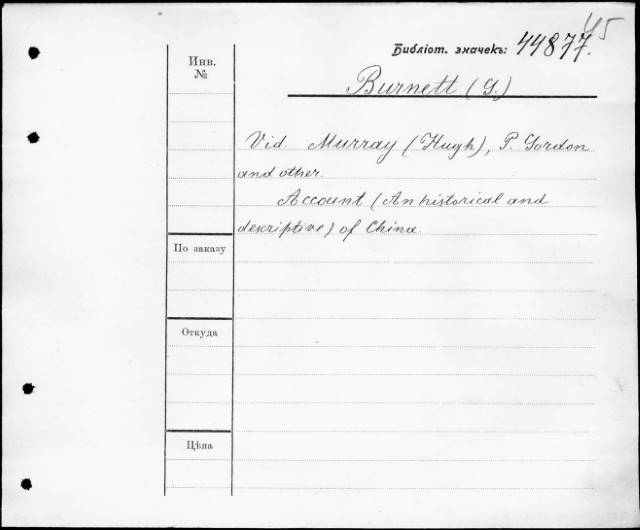 45
Библіот. значекъ: 44877.
Инв.
№
Burnett (G.)
Vid. Murray (Hugh), P. Gordon
and other.
Account (An historical and
descriptive) of China
По заказу
Откуда
Цѣна